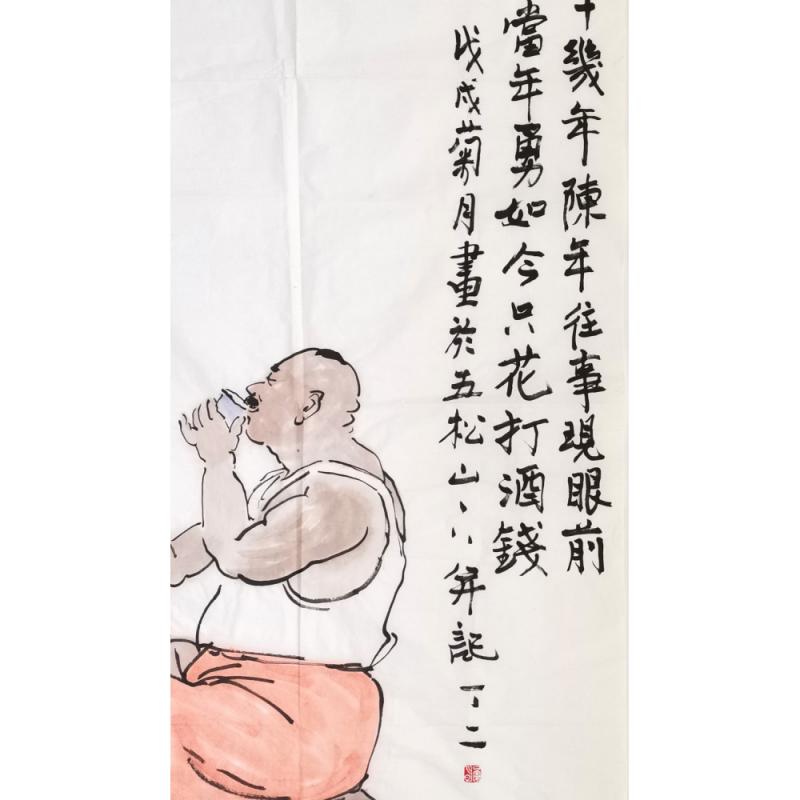 十幾年陳年往事現眼前
當年勇如今只花打酒錢
戊戌菊月畫於五松山并記丁二